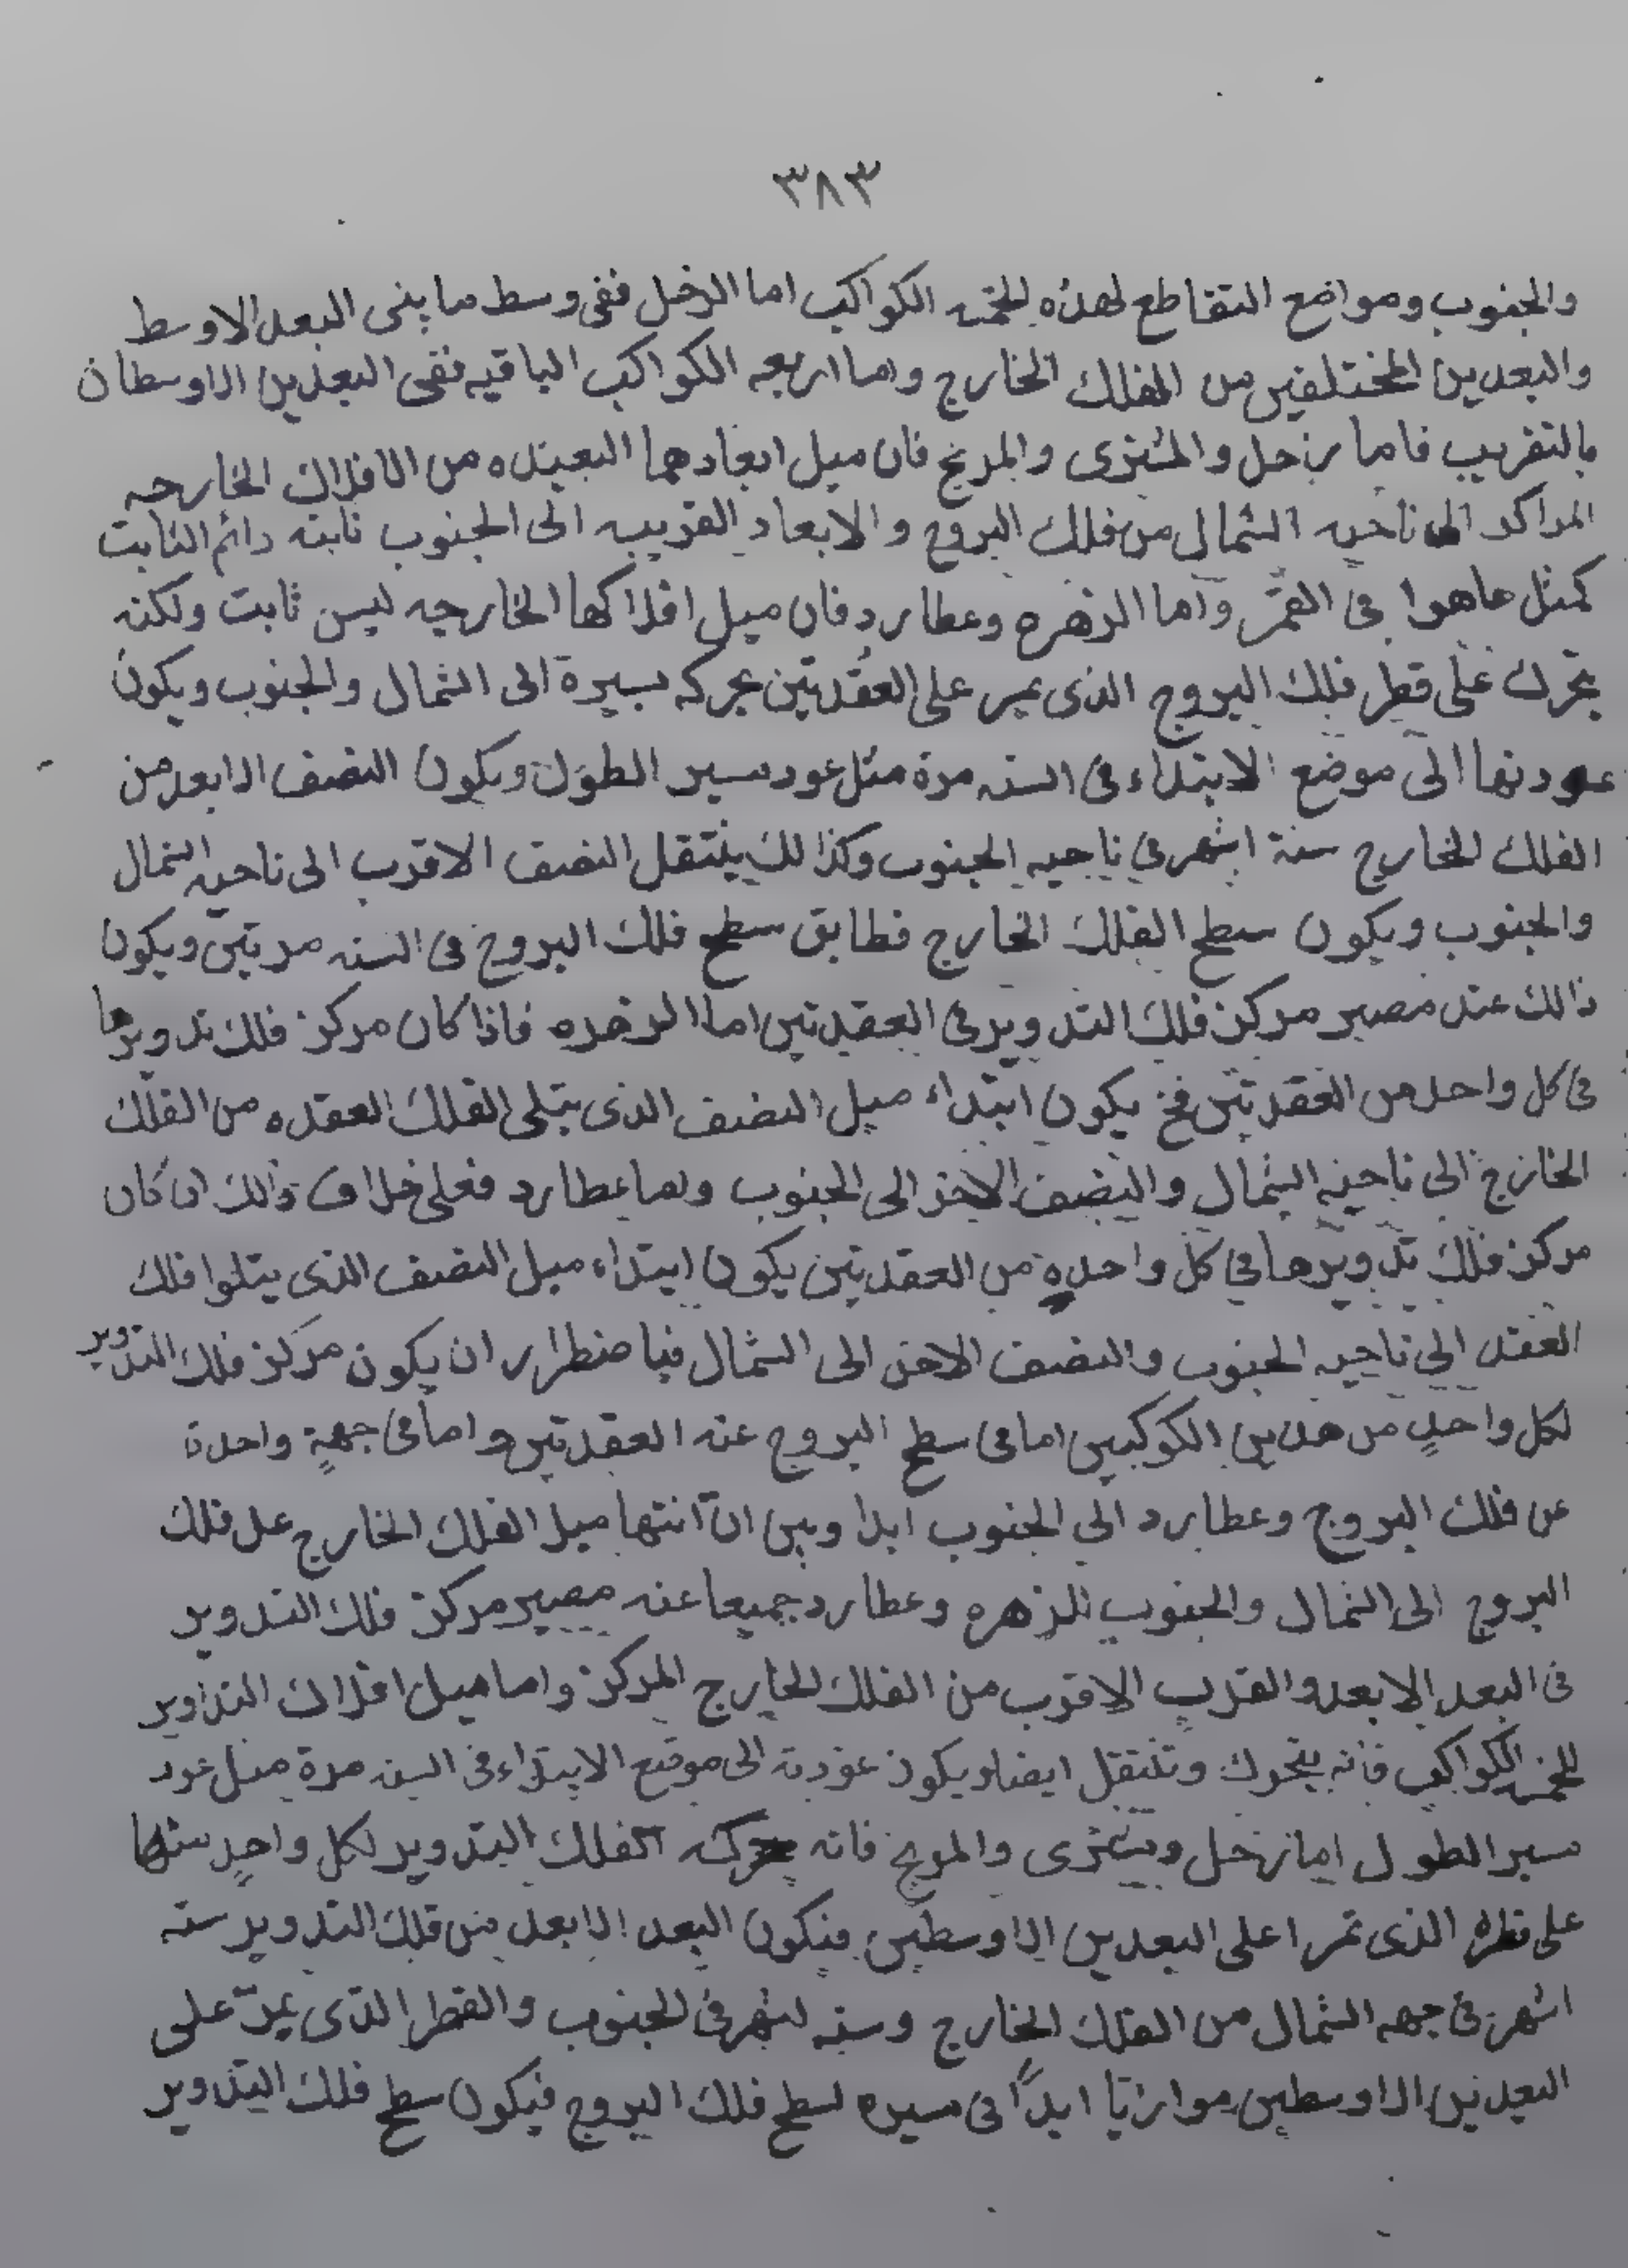 ٣٨٣
والجنوب ومواضع التقاطع لهذه الخمسه الكواكب اما الزحل ففى وسط ما بىنى البعد الاوسط
والبعدين المختلفين من الفلك الخارج واما اربعه الكواكب الباقيه ففى البعدين الاوسطان
بالتقريب فاما زحل والمشترى والمريخ فان ميل ابعادهما البعيده من الافلاك الخارجه
المراكز الى ناحيه الشمال من فلك البروج والابعاد القريبه الى الجنوب ثابته دائم الثابت
كمثل ما هوا فى القمر واما الزهره وعطارد فان ميل افلاكها الخارجيه ليس ثابت ولكنه
يتحرك على قطر فلك البروج الذى يمر على العقدتين بحركه يسيرة الى الشمال والجنوب ويكون
عودتها الى موضع الابتداء فى السنه مرة مثل عود مسير الطول ويكون النصف الابعد من
الفلك الخارج ستة اشهر فى ناحيه الجنوب وكذالك ينتقل النصف الاقرب الى ناحيه الشمال
والجنوب ويكون سطح الفلك الخارج فطابق سطح فلك البروج فى السنه مرتين ويكون
ذالك عند مصير مركز فلك التدوير فى العقدتين اما الزهره فاذا كان مركز فلك تدويرها
فى كل واحد من العقدتين فح يكون ابتداء ميل النصف الذى يتلى الفلك العقده من الفلك
الخارج الى ناحيه الشمال والنصف الاخر الى الجنوب واما عطارد فعلى خلاف ذالك ان كان
مركز فلك تدويرها فى كل واحده من العقدتين يكون ابتداء ميل النصف الذى يتلوا فلك
العقد الى ناحيه الجنوب والنصف الاخر الى الشمال فباضطرار ان يكون مركز فلك التدوير
لكل واحدٍ من هدين الكوكبين اما فى سطح البروج عند العقدتين واما فى جهةٍ واحدة
عن فلك البروج وعطارد الى الجنوب ابدا وبين انّ انتها ميل الفلك الخارج عل فلك
البروج الى الشمال والجنوب للزهره وعطارد جميعا عند مصير مركز فلك التدوير
فى البعد الابعد والقرب الاقرب من الفلك الخارج المركز واما ميل افلاك التداوير
للخمسه الكواكب فانه يتحرك وتنتقل ايضا ويكون عودته الى موضع الابتداء فى السنه مرة مثل عود
مسير الطول اما زحل ومشترى والمريخ فانه يحركه الفلك التدوير لكل واحدٍ منها
على قطره الذى تمر اعلى البعدين الاوسطين فيكون البعد الابعد من فلك التدوير سته
اشهر فى جهه الشمال من الفلك الخارج وسته اشهر فى الجنوب والقطر الذى يمرّ على
البعدين الاوسطين موازيا ابداً فى مسيره لسطح فلك البروج فيكون سطح فلك التدوير